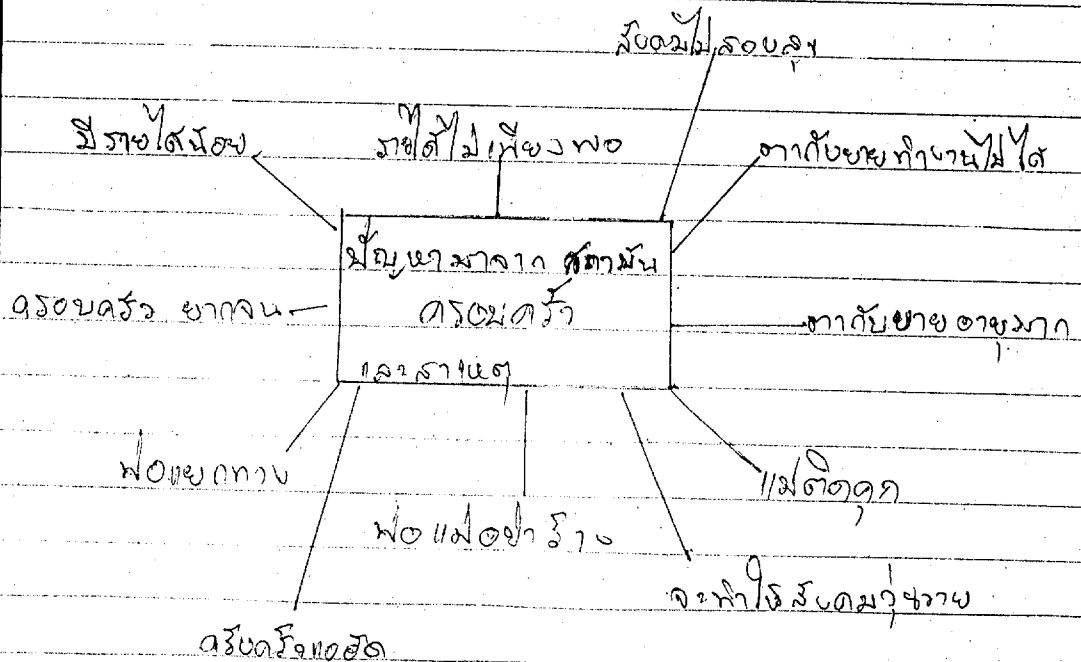 สังคมไม่สงบสุข
มีรายได้น้อย รายได้ไม่เพียงพอ ตากับยายทำงานไม่ได้
ปัญหามาจาก สถาบัน
ครอบครัว ยากจน ครอบครัว ตากับยาย อายุมาก
และสาเหตุ
พ่อแยกทาง แม่ติดคุก
พ่อแม่อย่าร้าง
จะทำให้สังคมวุ่นวาย